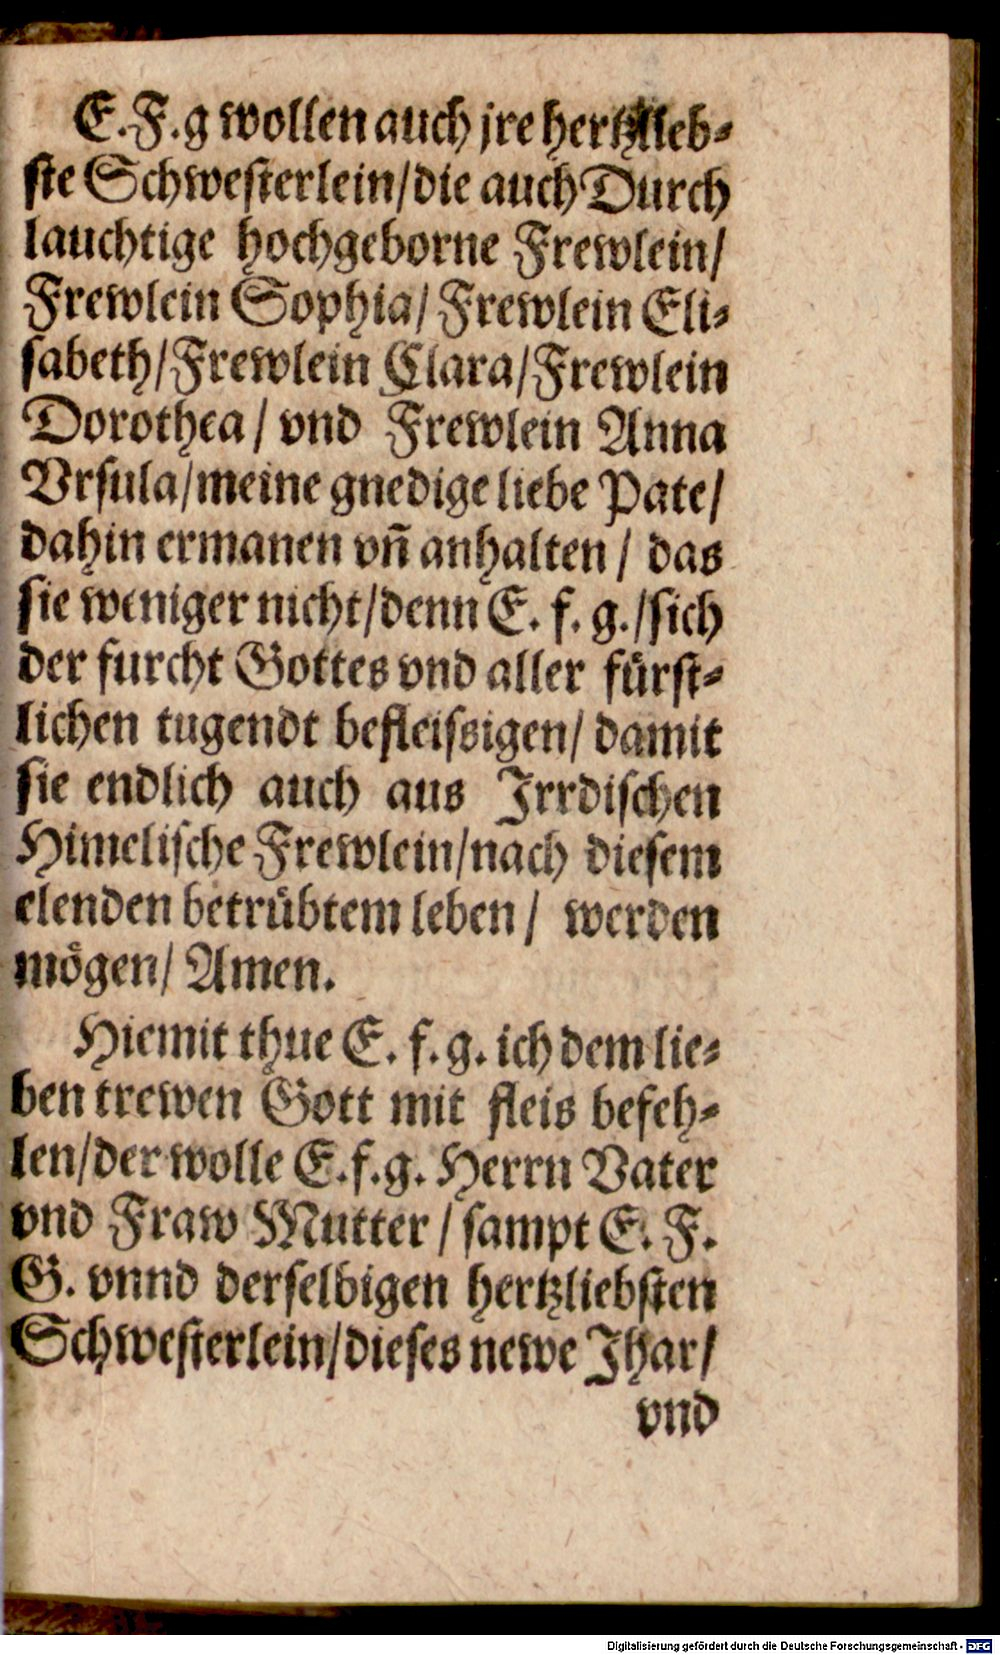 E.F.g wollen auch jre hertzlieb⸗
ste Schwesterlein/die auch Durch
lauchtige hochgeborne Frewlein/
Frewlein Sophia/ Frewlein Eli⸗
sabeth/Frewlein Clara/Frewlein
Dorothea/ vnd Frewlein Anna
Vrsula/meine gnedige liebe Pate/
dahin ermanen vn̄ anhalten/ das
sie weniger nicht/denn E. f. g./sich
der furcht Gottes vnd aller fürst⸗
lichen tugendt befleissigen/ damit
sie endlich auch aus Irrdischen
Himelische Frewlein/nach diesem
elenden betrübtem leben/ werden
mögen/ Amen.
Hiemit thue E. f. g. ich dem lie⸗
ben trewen Gott mit fleis befeh⸗
len/der wolle E.f.g. Herrn Vater
vnd Fraw Mutter/ sampt E. F.
G. vnnd derselbigen hertzliebsten
Schwesterlein/dieses newe Jhar/
vnd
Digitalisierung gefördert durch die Deutsche Forschungsgemeinschaft - DFG